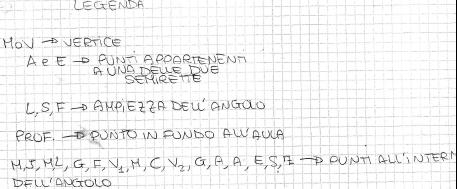 LEGENDA
MOV → VERTICE
A e E → PUNTI APPARTENENTI
A UNA DELLE DUE
SEMIRETTE
L, S, F → AMPIEZZA DELL'ANGOLO
PROF. → PUNTO IN FONDO ALL'AULA
M, J, M, L, G, F, V1, M, C, V2, G, A, A, E, S, F → PUNTI ALL'INTERN
DELL'ANGOLO